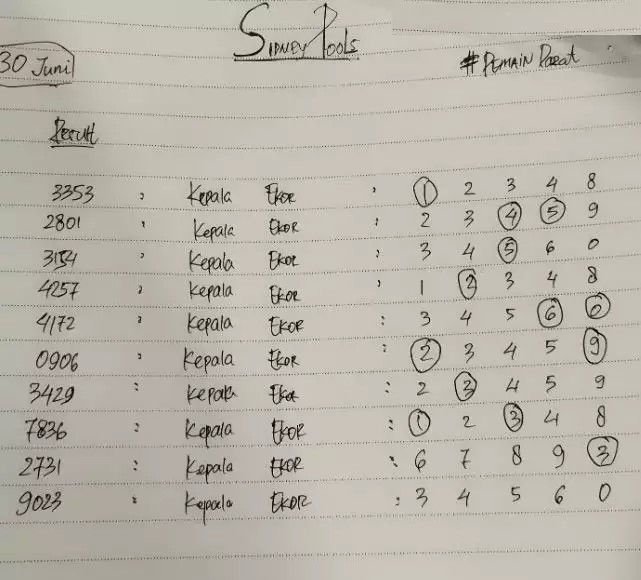 SIDNEY Pools
30 Juni
# PEMAIN Pasat
Result
3353 : Kepala EKOR : 1 2 3 4 8
2801 : Kepala EKOR : 2 3 4 5 9
3154 : Kepala EKOR : 3 4 5 6 0
4257 : Kepala EKOR : 1 2 3 4 8
4172 : Kepala EKOR : 3 4 5 6 0
0906 : Kepala EKOR : 2 3 4 5 9
3429 : Kepala Ekor : 2 3 4 5 9
7836 : Kepala EKOR : 1 2 3 4 8
2731 : Kepala EKOR : 6 7 8 9 3
9023 : Kepala EKOR : 3 4 5 6 0